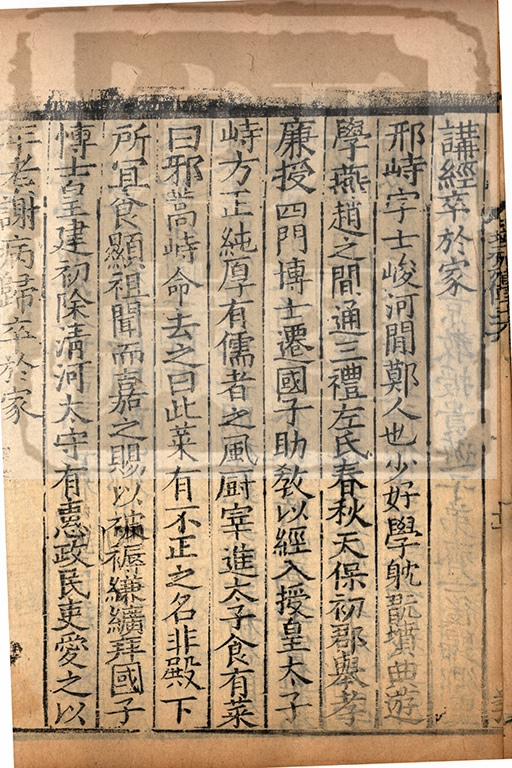 講經卒於家
邢峙字士峻河間鄭人也少好學躭翫墳典遊
學燕趙之間通三禮左氏春秋天保初郡舉孝
廉授四門博士遷國子助敎以經入授皇太子
峙方正純厚有儒者之風厨宰進太子食有菜
曰邪蒿峙命去之曰此菜有不正之名非殿下
所宜食顯祖聞而嘉之賜以被褥縑纊拜國子
博士皇建初除清河太守有惠政民吏愛之以
年老謝病歸卒於家